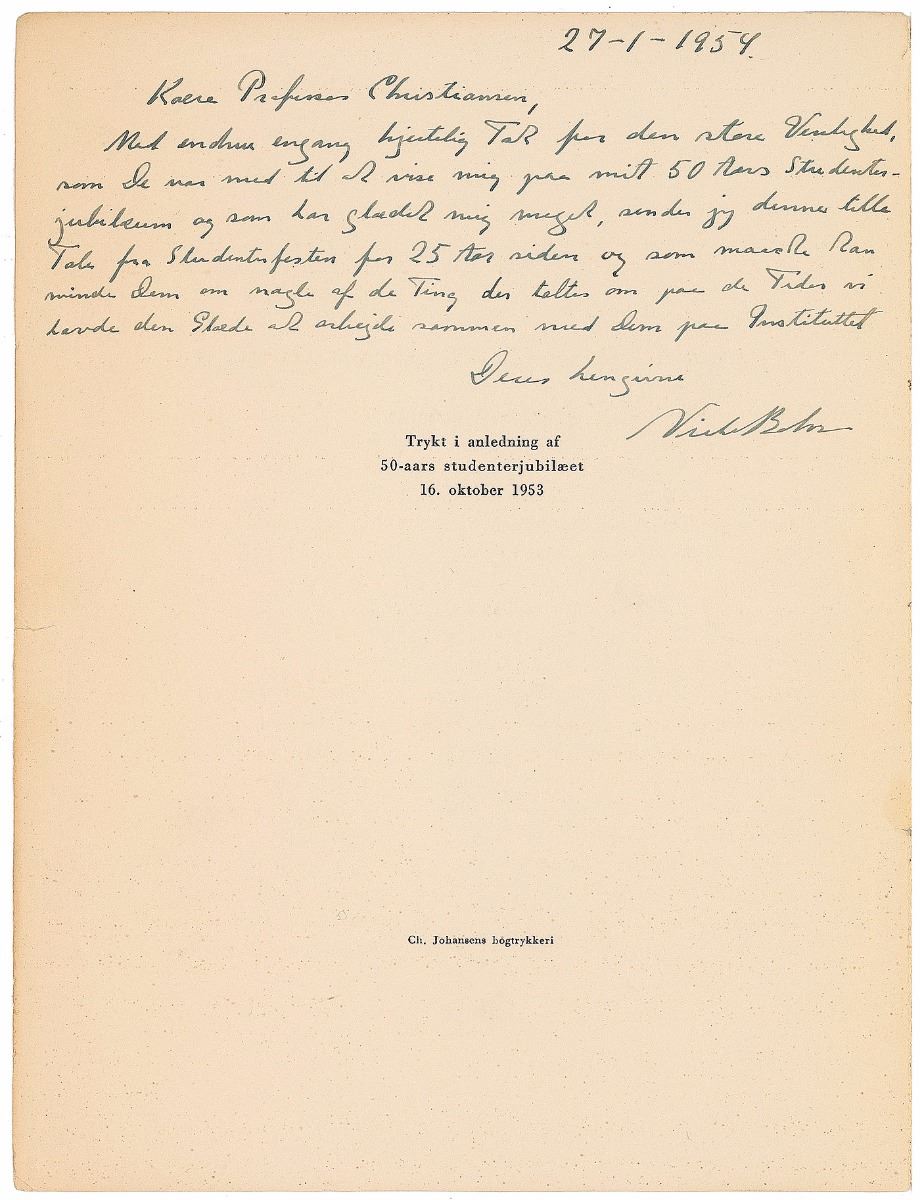 27-1-1954.
Kære Professor Christiansen,
Med endnu engang hjertelig Tak for den store Venlighed,
som De var med til at vise mig paa mit 50 Aars Studenter-
jubilæum og som har glædet mig meget, sender jeg denne lille
Tale fra Studenterfesten for 25 Aar siden og som maaske kan
minde Dem om nogle af de Ting der taltes om paa de Tider vi
havde den Glæde at arbejde sammen med Dem paa Instituttet
Deres hengivne
Niels Bohr
Trykt i anledning af
50-aars studenterjubilæet
16. oktober 1953
Ch. Johansens bogtrykkeri